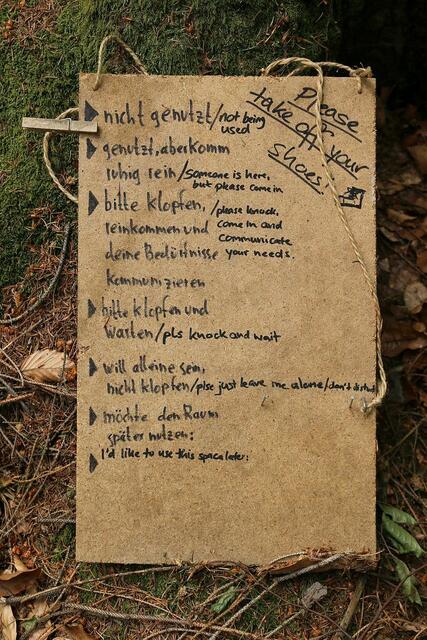 Please
take off your
shoes
nicht genutzt/not being
used
genutzt, aber komm
ruhig rein/someone is here,
but please come in
bitte klopfen, /please knock,
reinkommen und come in and
communicate
deine Bedürfnisse your needs.
kommunizieren
bitte klopfen und
warten/pls knock and wait
will alleine sein,
nicht klopfen/plse just leave me alone/don't disturb
möchte den Raum
später nutzen:
I'd like to use this space later: